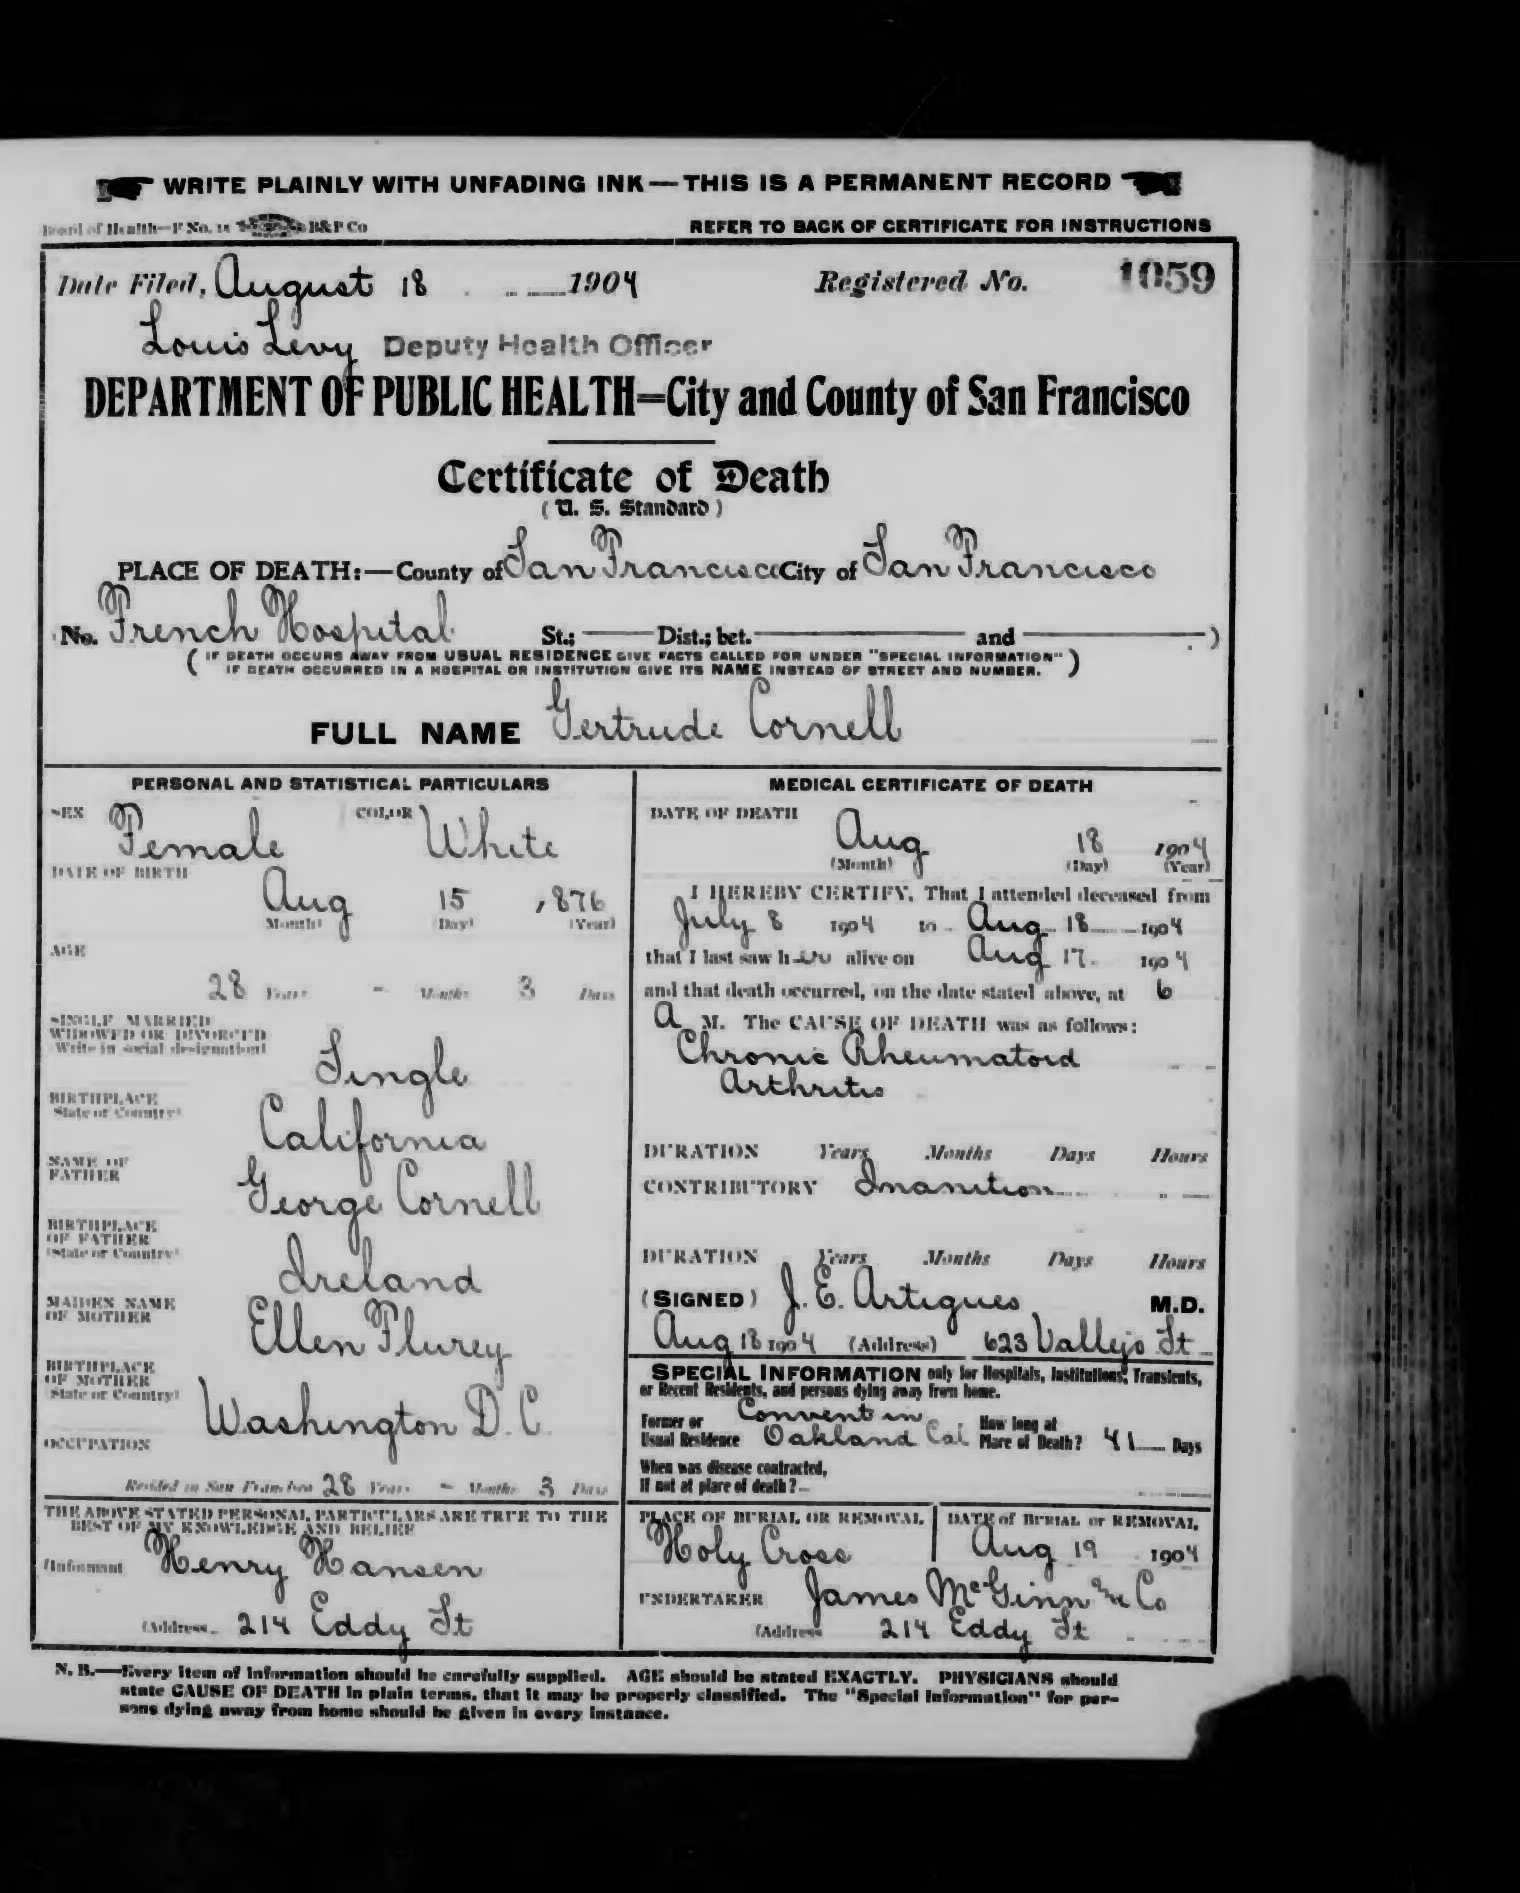 WRITE PLAINLY WITH UNFADING INK—THIS IS A PERMANENT RECORD
Board of Health—F No. 11 B&P Co REFER TO BACK OF CERTIFICATE FOR INSTRUCTIONS
Date Filed, August 18 1904 Registered No. 1059
Louis Levy Deputy Health Officer
DEPARTMENT OF PUBLIC HEALTH=City and County of San Francisco
Certificate of Death
(U. S. Standard)
PLACE OF DEATH:—County of San Francisco City of San Francisco
No. French Hospital St.; Dist.; bet. and )
(IF DEATH OCCURS AWAY FROM USUAL RESIDENCE GIVE FACTS CALLED FOR UNDER "SPECIAL INFORMATION"
IF DEATH OCCURRED IN A HOSPITAL OR INSTITUTION GIVE ITS NAME INSTEAD OF STREET AND NUMBER.)
FULL NAME Gertrude Cornell
PERSONAL AND STATISTICAL PARTICULARS
SEX Female COLOR White
DATE OF BIRTH
Aug 15 1876
(Month) (Day) (Year)
AGE
28 Years - Months 3 Days
SINGLE MARRIED
WIDOWED OR DIVORCED
(Write in social designation)
Single
BIRTHPLACE
(State or Country)
California
NAME OF
FATHER
George Cornell
BIRTHPLACE
OF FATHER
(State or Country)
Ireland
MAIDEN NAME
OF MOTHER
Ellen Flurey
BIRTHPLACE
OF MOTHER
(State or Country)
Washington D.C.
OCCUPATION
Resided in San Francisco 28 Years - Months 3 Days
THE ABOVE STATED PERSONAL PARTICULARS ARE TRUE TO THE
BEST OF MY KNOWLEDGE AND BELIEF
(Informant Henry Hansen
(Address 214 Eddy St
MEDICAL CERTIFICATE OF DEATH
DATE OF DEATH
Aug 18 1904
(Month) (Day) (Year)
I HEREBY CERTIFY, That I attended deceased from
July 8 1904 to Aug 18 1904
that I last saw h er alive on Aug 17 1904
and that death occurred, on the date stated above, at 6
A M. The CAUSE OF DEATH was as follows:
Chronic Rheumatoid
Arthritis
DURATION Years Months Days Hours
CONTRIBUTORY Inanition
DURATION Years Months Days Hours
(SIGNED) J. E. Artigues M.D.
Aug 18 1904 (Address) 623 Vallejo St
SPECIAL INFORMATION only for Hospitals, Institutions, Transients,
or Recent Residents, and persons dying away from home.
Former or Usual Residence Convent in Oakland Cal How long at Place of Death? 41 Days
When was disease contracted,
If not at place of death?
PLACE OF BURIAL OR REMOVAL
Holy Cross
DATE of BURIAL or REMOVAL
Aug 19 1904
UNDERTAKER James McGinn & Co
(Address 214 Eddy St
N. B.—Every item of information should be carefully supplied. AGE should be stated EXACTLY. PHYSICIANS should
state CAUSE OF DEATH in plain terms, that it may be properly classified. The "Special Information" for per-
sons dying away from home should be given in every instance.